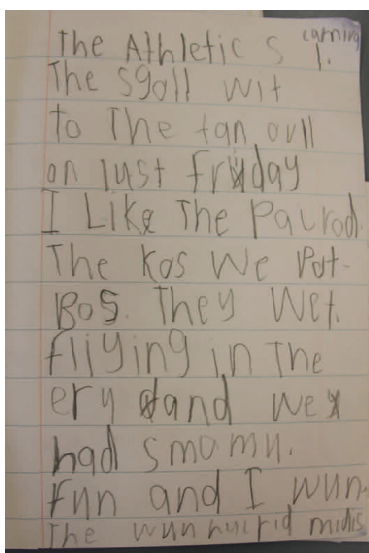 The Athletic s carning 1.
The sgall wit
to The tan oull
on last friday
I Like The Paurod.
The Kos We Pot-
Bos. They Wet.
fliying in The
ery and we
had smamu.
fun and I wun
The wun hucrid midis